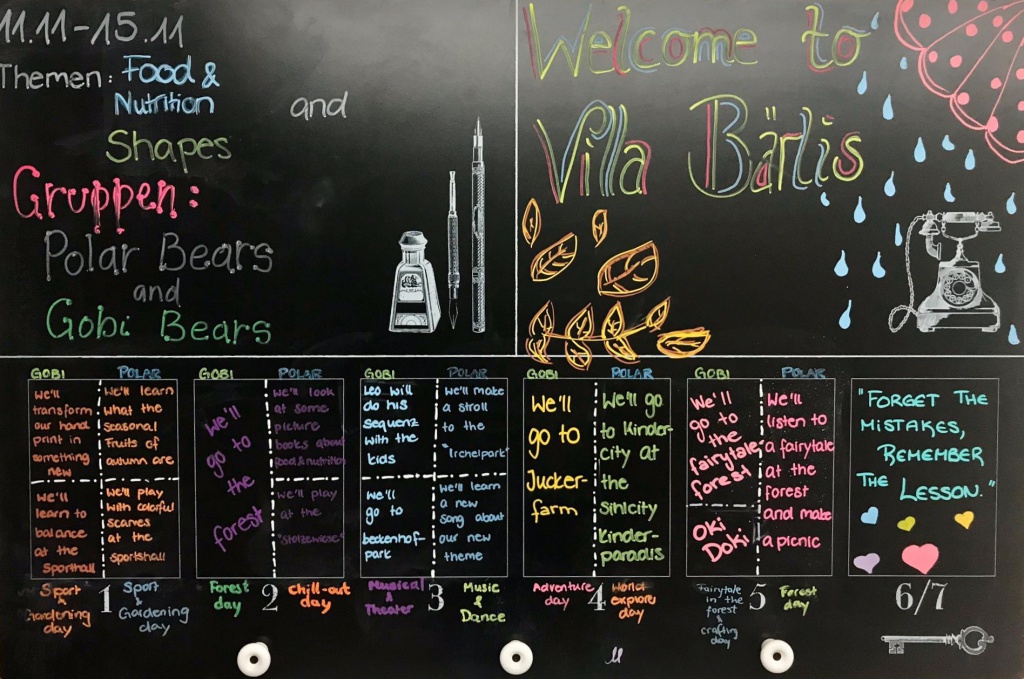 11.11-15.11
Themen: Food &
Nutrition
and
Shapes
Gruppen:
Polar Bears
and
Gobi Bears
Welcome to
Villa Bärlis
GOBI
We'll
transform
our hand
print in
something
new
We'll
learn to
balance
at the
Sporthall
POLAR
We'll learn
what the
seasonal
fruits of
autumn are
We'll play
with colorful
scarves
at the
sportshall
Sport
&
Gardening
day
1
Sport
&
Gardening
day
GOBI
We'll
go to
the
forest
POLAR
We'll look
at some
picture
books about
food & nutrition
We'll play
at the
"Stolzewiese"
Forest
day
2
chill-out
day
GOBI
Leo will
do his
sequenz
with the
kids
We'll
go to
beckenhof-
park
POLAR
We'll make
a stroll
to the
"Irchelpark"
We'll learn
a new
song about
our new
theme
Musical
&
Theater
3
Music
&
Dance
GOBI
We'll
go to
Jucker-
farm
POLAR
We'll go
to Kinder-
city at
the
Sihlcity
Kinder-
paradis
Adventure
day
4
World
explore
day
GOBI
We'll
go to
the
fairytale
forest
Oki
Doki
POLAR
We'll
listen to
a fairytale
at the
forest
and make
a picnic
Fairytale
in the
forest
&
crafting
day
5
Forest
day
"FORGET THE
MISTAKES,
REMEMBER
THE LESSON."
6/7